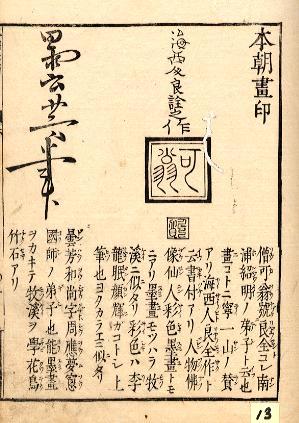 本朝畫印
海西人良詮作
可翁
僧可翁號良全コレ南
浦紹明ノ弟子ト云也
畫コトニ寧一山ノ賛
アリ海西人良全作ト
云書付アリ人物佛
像仙人彩色墨畫トモ
ニアリ墨畫モツハラ牧
溪ニ似タリ彩色ハ李
龍眠顔輝ガコトシ上
筆也ヨクカラエニ似タリ
曇芳和尚字周應夢窓
國師ノ弟子也能墨畫
ヲカキテ牧溪ヲ學花鳥
竹石アリ
13